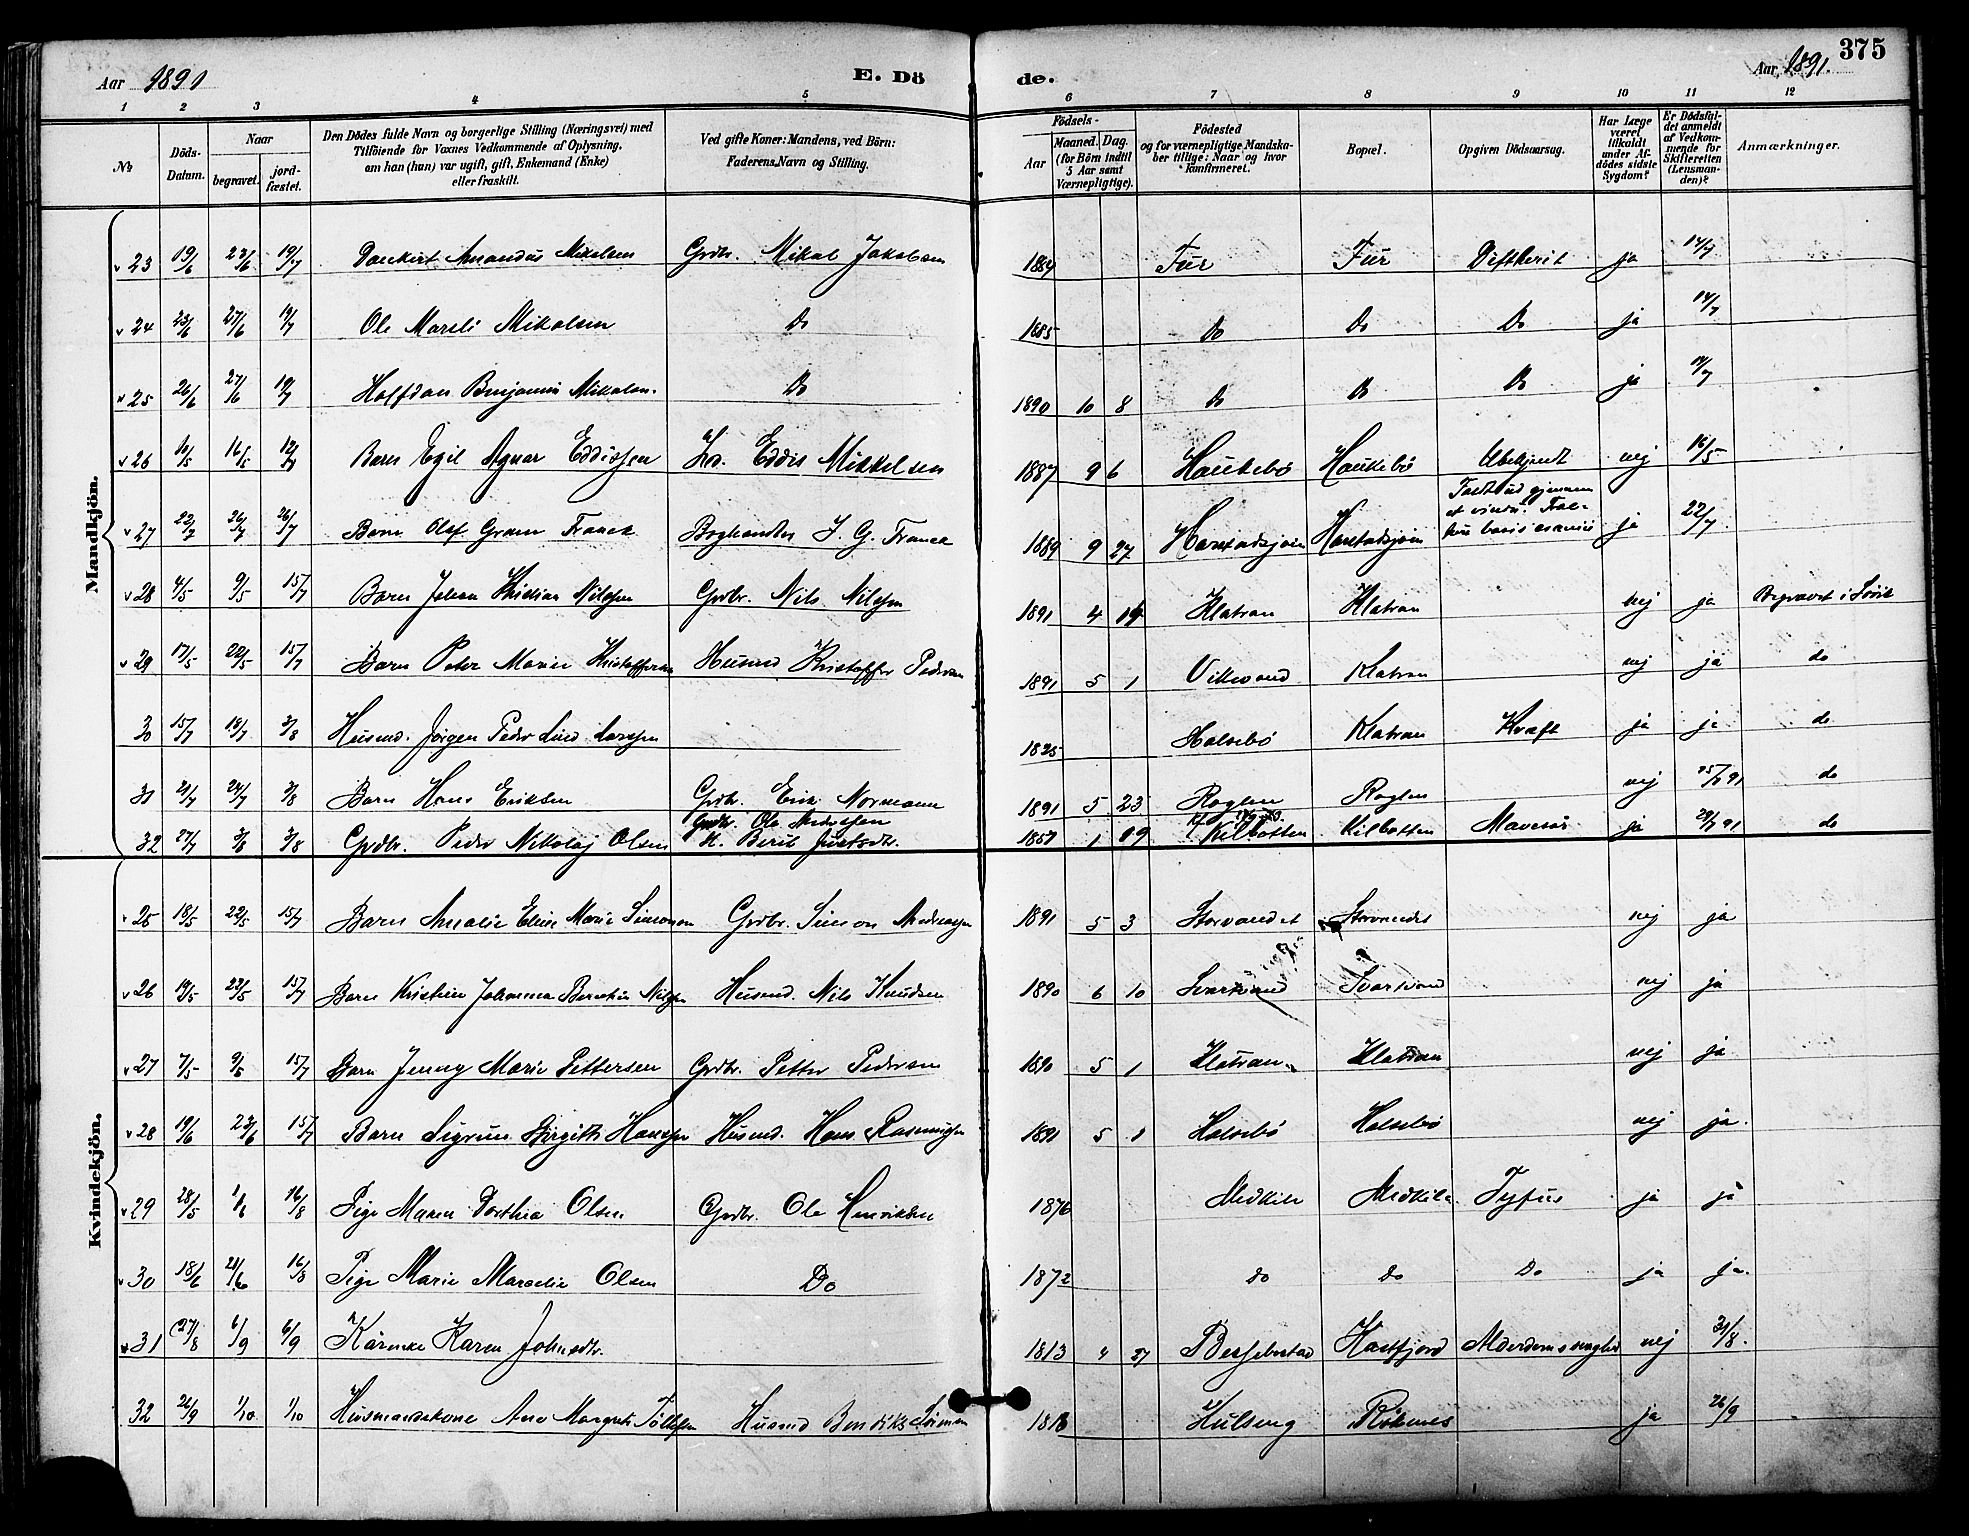 375
Aar 1891
E. Dö
de.
Aar 1891.
1 2 3 4 5 6 7 8 9 10 11 12
No
Döds-Datum.
Naar
begravet.
jord-fæstet.
Den Dödes fulde Navn og borgerlige Stilling (Næringsvei) med
Tilföiende for Voxnes Vedkommende af Oplysning,
om han (hun) var ugift, gift, Enkemand (Enke)
eller fraskilt.
Ved gifte Koner: Mandens, ved Börn:
Faderens Navn og Stilling.
Födsels-
Aar
Maaned.
Dag.
(for Börn indtil
5 Aar samt
Værnepligtige).
Födested
og for værnepligtige Mandska-
ber tillige: Naar og hvor
konfirmeret.
Bopæl.
Opgiven Dödsaarsag.
Har Læge
været
tilkaldt
under Af-
dödes sidste
Sygdom?
Er Dödsfal-
det anmeldt
af Vedkom-
mende for
Skifteretten
(Lensman-
den)?
Anmærkninger.
Mandkjön.
23 19/6 23/6 19/7 Amandus Mikalsen Grdbr. Mikal Jakobsen 1884 Fur Fur Difterit ja 14/7
24 23/6 27/6 19/7 Ole Mareli Mikalsen Do 1885 Do Do Do ja 14/7
25 26/6 27/6 19/7 Halfdan Benjamin Mikalsen. Do 1890 10 8 Do Do Do ja 14/7
26 10/5 16/5 12/7 Barn Egil Agnar Eddissen Eddis Mikkelsen 1887 9 6 Haukebö Haukebö Ubekjendt nej 16/5
27 22/7 26/7 26/7 Barn Olaf Gram Franck Boghandler J. G. Franck 1889 9 27 Harstadsjøen Harstadsjøen Faldt ud gjennem et vindu. ja 22/7
28 4/5 9/5 15/7 Barn Johan Kristian Nilssen Grdbr. Nils Nilssen 1891 4 14 Klatran Klatran nej ja Begravet i
29 17/5 22/5 15/7 Barn Peter Marin Kristoffersen Husmd Kristoffer Pedersen 1891 5 1 Vikvand Klatran nej ja do
30 15/7 18/7 3/8 Husmd. Jörgen Peder Lind Larssen 1825 Halsebö Klatran Kræft ja ja do
31 21/7 24/7 3/8 Barn Hans Eriksen Grdbr. Erik Normann 1891 5 23 Roglen Roglen nej 25/7 91 do
32 27/7 3/8 3/8 Grdbr. Peder Nikolaj Olsen Grdbr. Ole Andreassen K. Berit Justsdtr. 1857 1 19 Kilbotten Kilbotten Mavesår ja 28/7 91 do
Kvindekjön.
25 18/5 22/5 15/7 Barn Amalie Eline Marie Simonsen Grdbr. Simon Andreassen 1891 5 3 Storvandet Storvandet nej ja
26 19/5 22/5 15/7 Barn Kristin Johanna Nilssen Husmd. Nils Knudsen 1890 6 10 Svartvand Svartvand nej ja
27 7/5 9/5 15/7 Barn Jenny Marie Pettersen Grdbr. Petter Pedersen 1890 5 1 Klatran Klatran nej ja
28 19/6 23/6 15/7 Barn Sigrun Birgitte Hanssen Husmd. Hans Rasmussen 1891 5 1 Halsebö Halsebö nej ja.
29 28/5 1/6 16/8 Pige Maren Dorthea Olsen Grdbr. Ole Henriksen 1876 Medkile Medkile Tyfus ja ja
30 18/6 21/6 16/8 Pige Marie Marselie Olsen Do 1872 do do Do ja ja.
31 27/8 6/9 6/9 Karen Johnsdtr. 1813 4 27 Bessebostad Kastfjord Alderdomssvaghed nej 31/8.
32 26/9 1/10 1/10 Husmandskone Ane Margrete Tollefsen Husmd Bendiks Simonsen 1818 Rödsnes ja 26/9